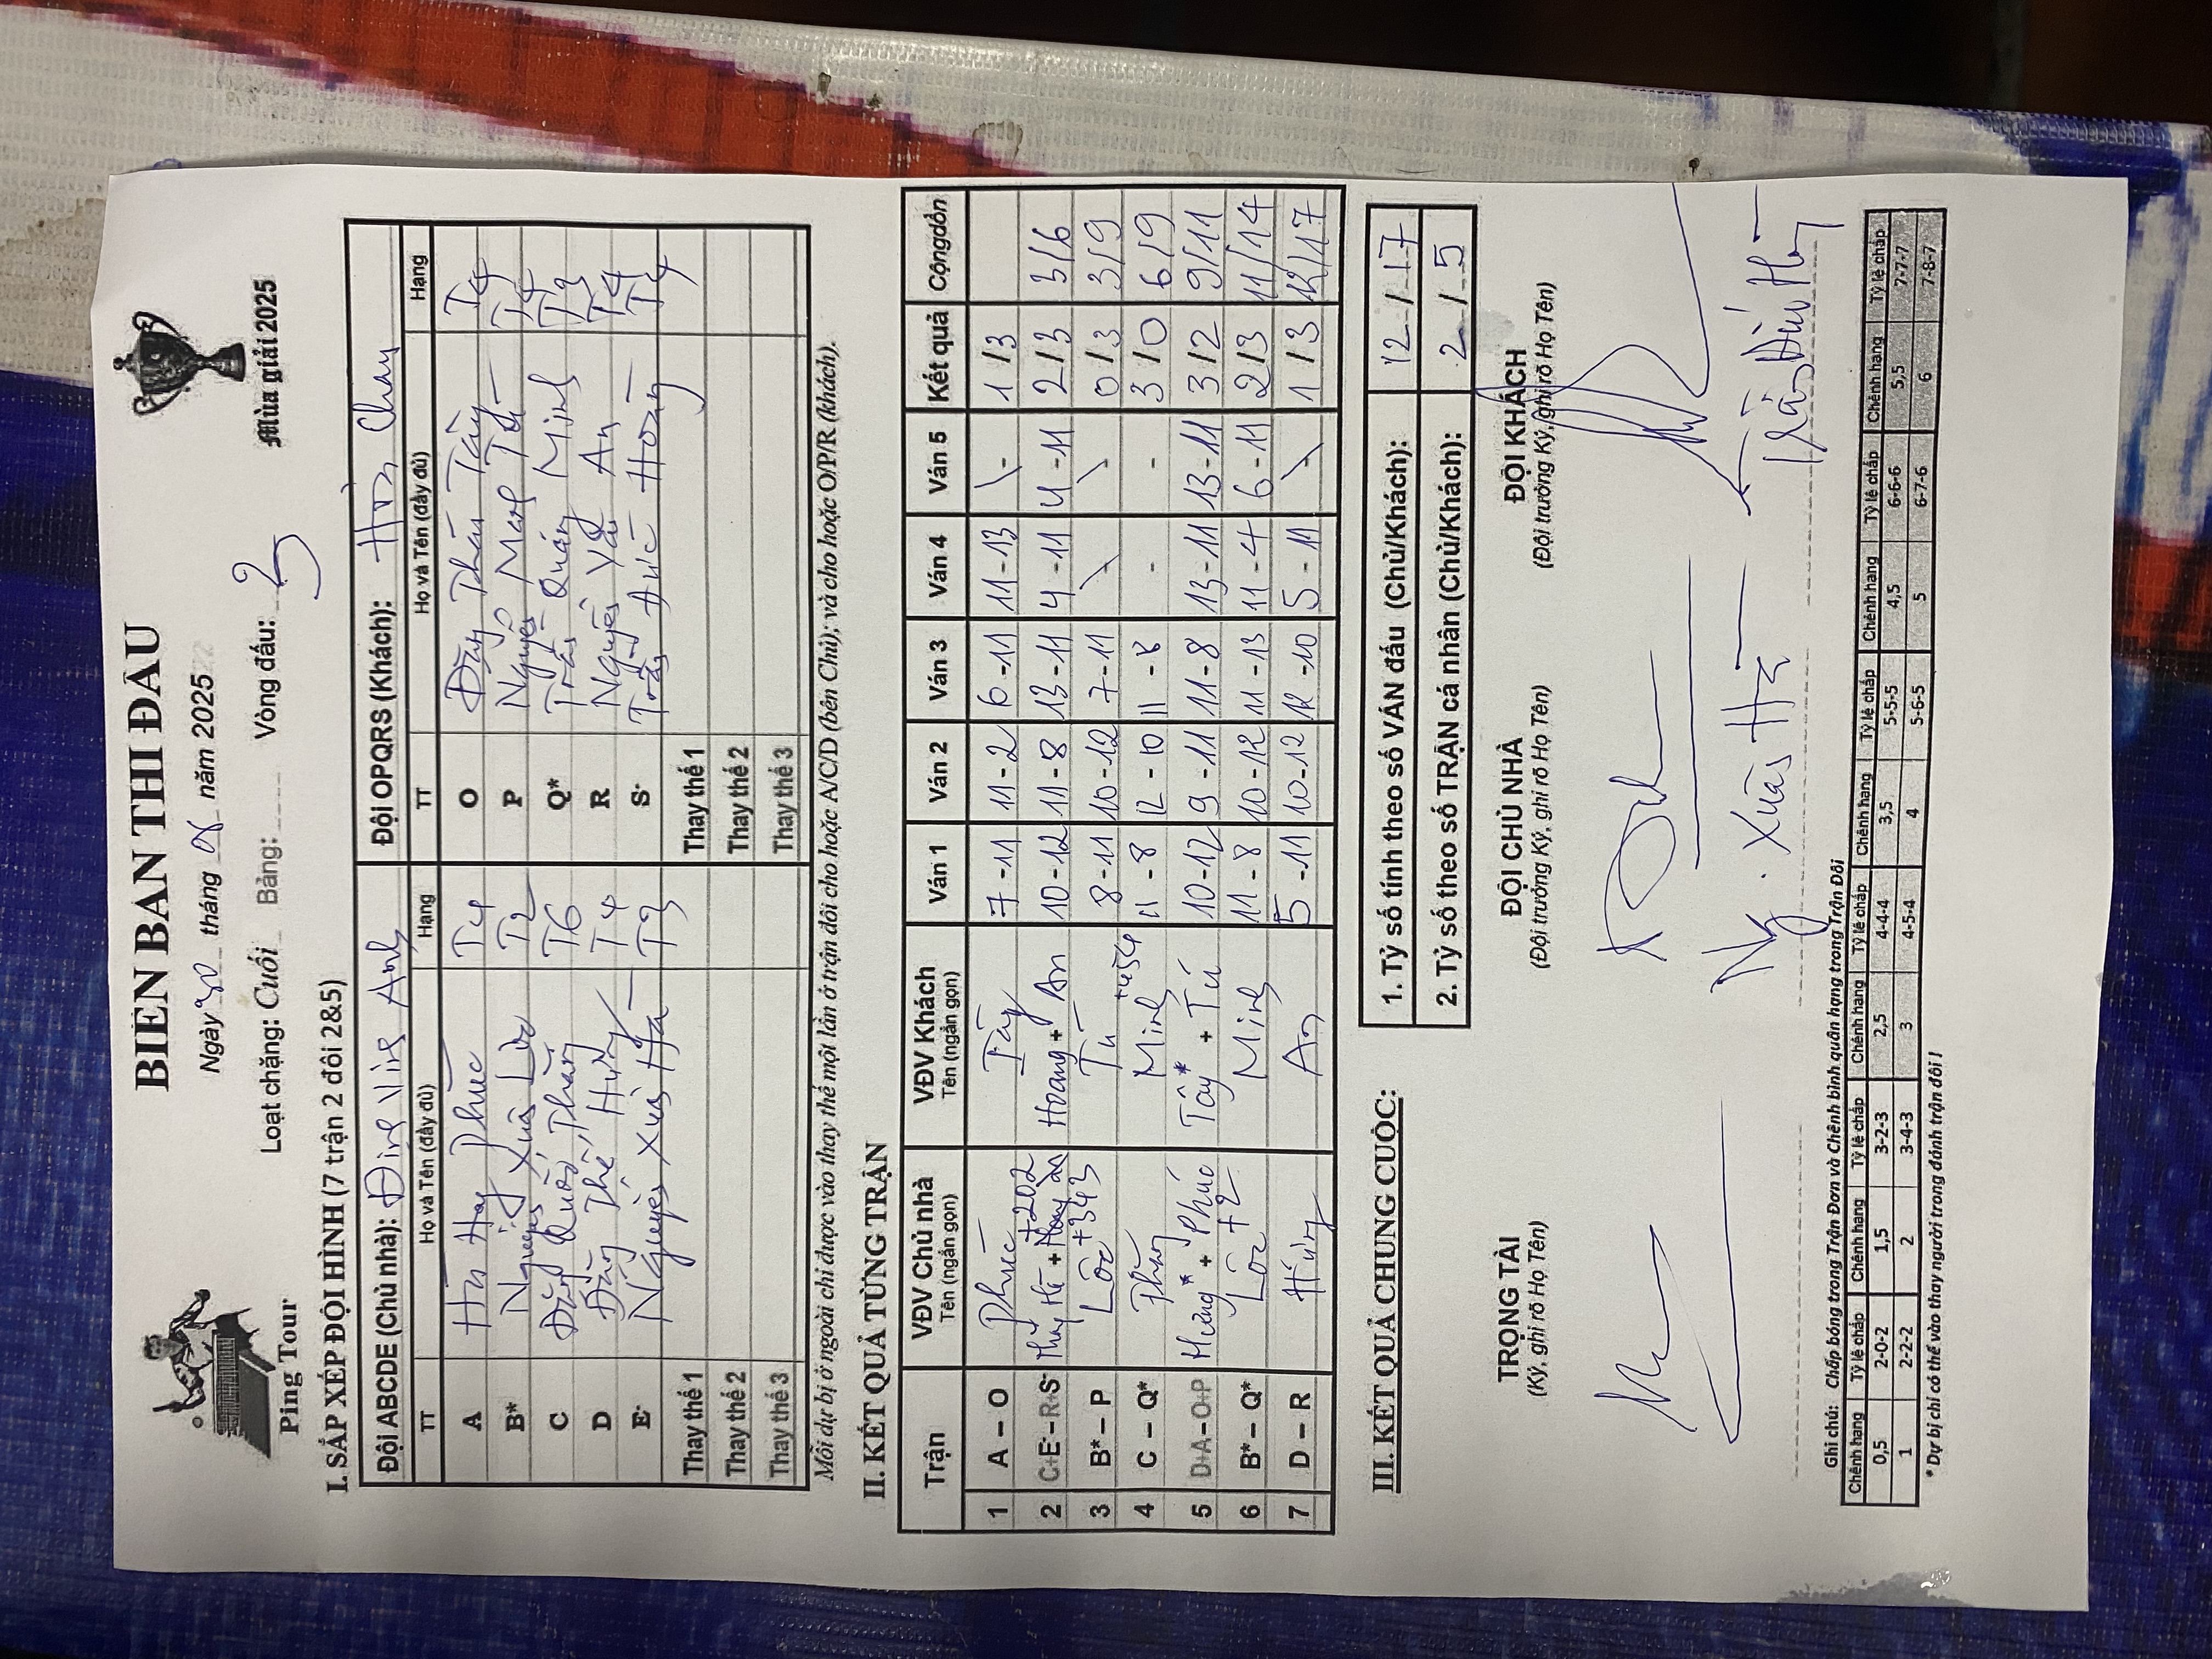 BIÊN BẢN THI ĐẤU
Ping Tour
Ngày 30 tháng 8 năm 2025
Loạt chặng: Cuối Bảng: Vòng đấu: 3
Mùa giải 2025
I. SẮP XẾP ĐỘI HÌNH (7 trận 2 đôi 2&5)
Đội ABCDE (Chủ nhà): Anh Đội OPQRS (Khách):
TT Họ và Tên (đầy đủ) Hạng TT Họ và Tên (đầy đủ) Hạng
A Phúc T4 O T4
B* Nguyễn Xuân Lộc T2 P Nguyễn T4
C Đặng Quốc Thắng T6 Q* Trần Quang Minh T3
D Đặng Thế Hưng T4 R Nguyễn Văn An T4
E- Nguyễn Xuân Hà T3 S- Trần Đức Hoàng T4
Thay thế 1 Thay thế 1
Thay thế 2 Thay thế 2
Thay thế 3 Thay thế 3
Mỗi dự bị ở ngoài chỉ được vào thay thế một lần ở trận đôi cho hoặc A/C/D (bên Chủ); và cho hoặc O/P/R (khách).
II. KẾT QUẢ TỪNG TRẬN
Trận VĐV Chủ nhà Tên (ngắn gọn) VĐV Khách Tên (ngắn gọn) Ván 1 Ván 2 Ván 3 Ván 4 Ván 5 Kết quả Cộng dồn
1 A – O Phúc 7-11 11-2 6-11 11-13 - 1/3
2 C+E-–R+S- +202 Hoàng + An 10-12 11-8 13-11 4-11 4-11 2/3 3/6
3 B* – P Lộc +343 Tú 8-11 10-12 7-11 - 0/3 3/9
4 C – Q* Thắng Minh +454 11-8 12-10 11-8 - - 3/0 6/9
5 D+A–O+P Hưng* + Phúc Tây* + Tú 10-12 9-11 11-8 13-11 13-11 3/2 9/11
6 B* – Q* Lộc +2 Minh 11-8 10-12 11-13 11-4 6-11 2/3 11/14
7 D – R Hưng An 5-11 10-12 12-10 5-11 - 1/3 12/17
III. KẾT QUẢ CHUNG CUỘC:
1. Tỷ số tính theo số VÁN đấu (Chủ/Khách): 12/17
2. Tỷ số theo số TRẬN cá nhân (Chủ/Khách): 2/5
TRỌNG TÀI ĐỘI CHỦ NHÀ ĐỘI KHÁCH
(Ký, ghi rõ Họ Tên) (Đội trưởng Ký, ghi rõ Họ Tên) (Đội trưởng Ký, ghi rõ Họ Tên)
Ng. Xuân Hà
Ghi chú: Chấp bóng trong Trận Đơn và Chênh bình quân hạng trong Trận Đôi
Chênh hạng Tỷ lệ chấp Chênh hạng Tỷ lệ chấp Chênh hạng Tỷ lệ chấp Chênh hạng Tỷ lệ chấp Chênh hạng Tỷ lệ chấp Chênh hạng Tỷ lệ chấp
0,5 2-0-2 1,5 3-2-3 2,5 4-4-4 3,5 5-5-5 4,5 6-6-6 5,5 7-7-7
1 2-2-2 2 3-4-3 3 4-5-4 4 5-6-5 5 6-7-6 6 7-8-7
* Dự bị chỉ có thể vào thay người trong đánh trận đôi !